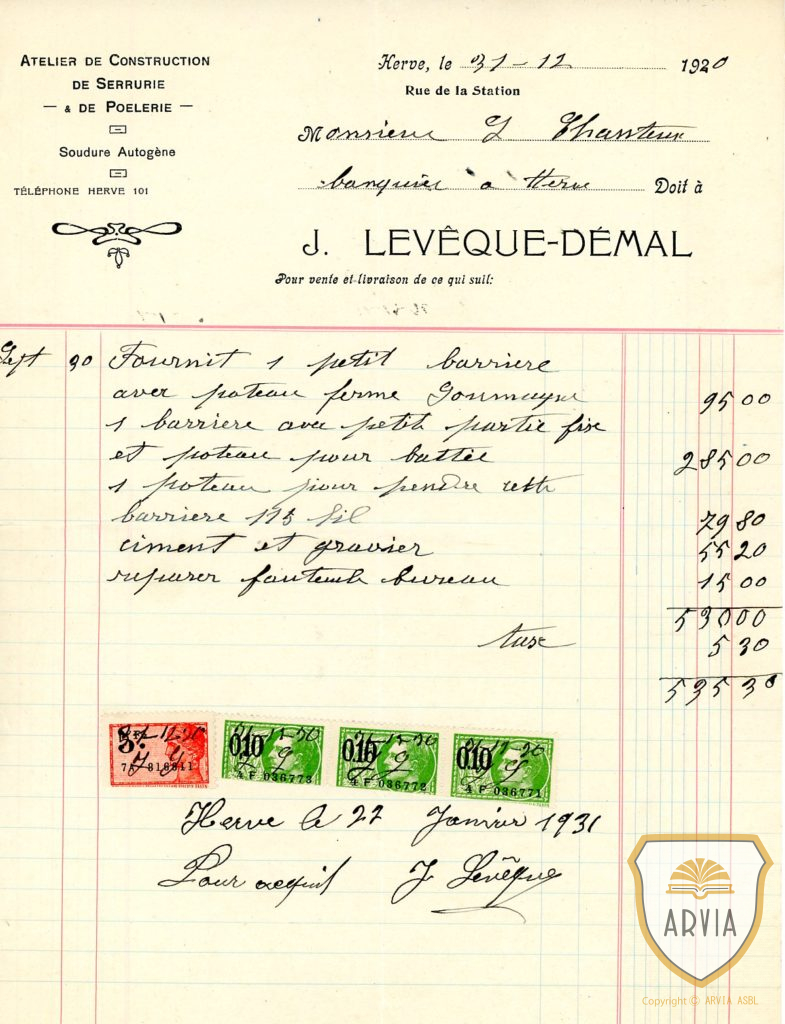 ATELIER DE CONSTRUCTION
DE SERRURIE
— & DE POELERIE —
Soudure Autogène
TÉLÉPHONE HERVE 101
Herve, le 31-12 1920
Rue de la Station
Monsieur J
banquier a Herve Doit à
J. LEVÊQUE-DÉMAL
Pour vente et livraison de ce qui suit:
Sept 30 Fournit 1 petit barriere
avec poteau ferme 95 00
1 barriere ave petit partie fixe
et poteau pour battée 285 00
1 poteau pour pendre cette
barriere 115 kil 79 80
ciment et gravier 55 20
reparer fauteuil bureau 15 00
530 00
taxe 5 30
535 30
31-12-30 31-12-30 31-12-30 31-12-30
5 0.10 0.10 0.10
4 F 036773 4 F 036772 4 F 036771
Herve le 22 Janvier 1931
Pour acquit J Levêque
ARVIA
Copyright © ARVIA ASBL